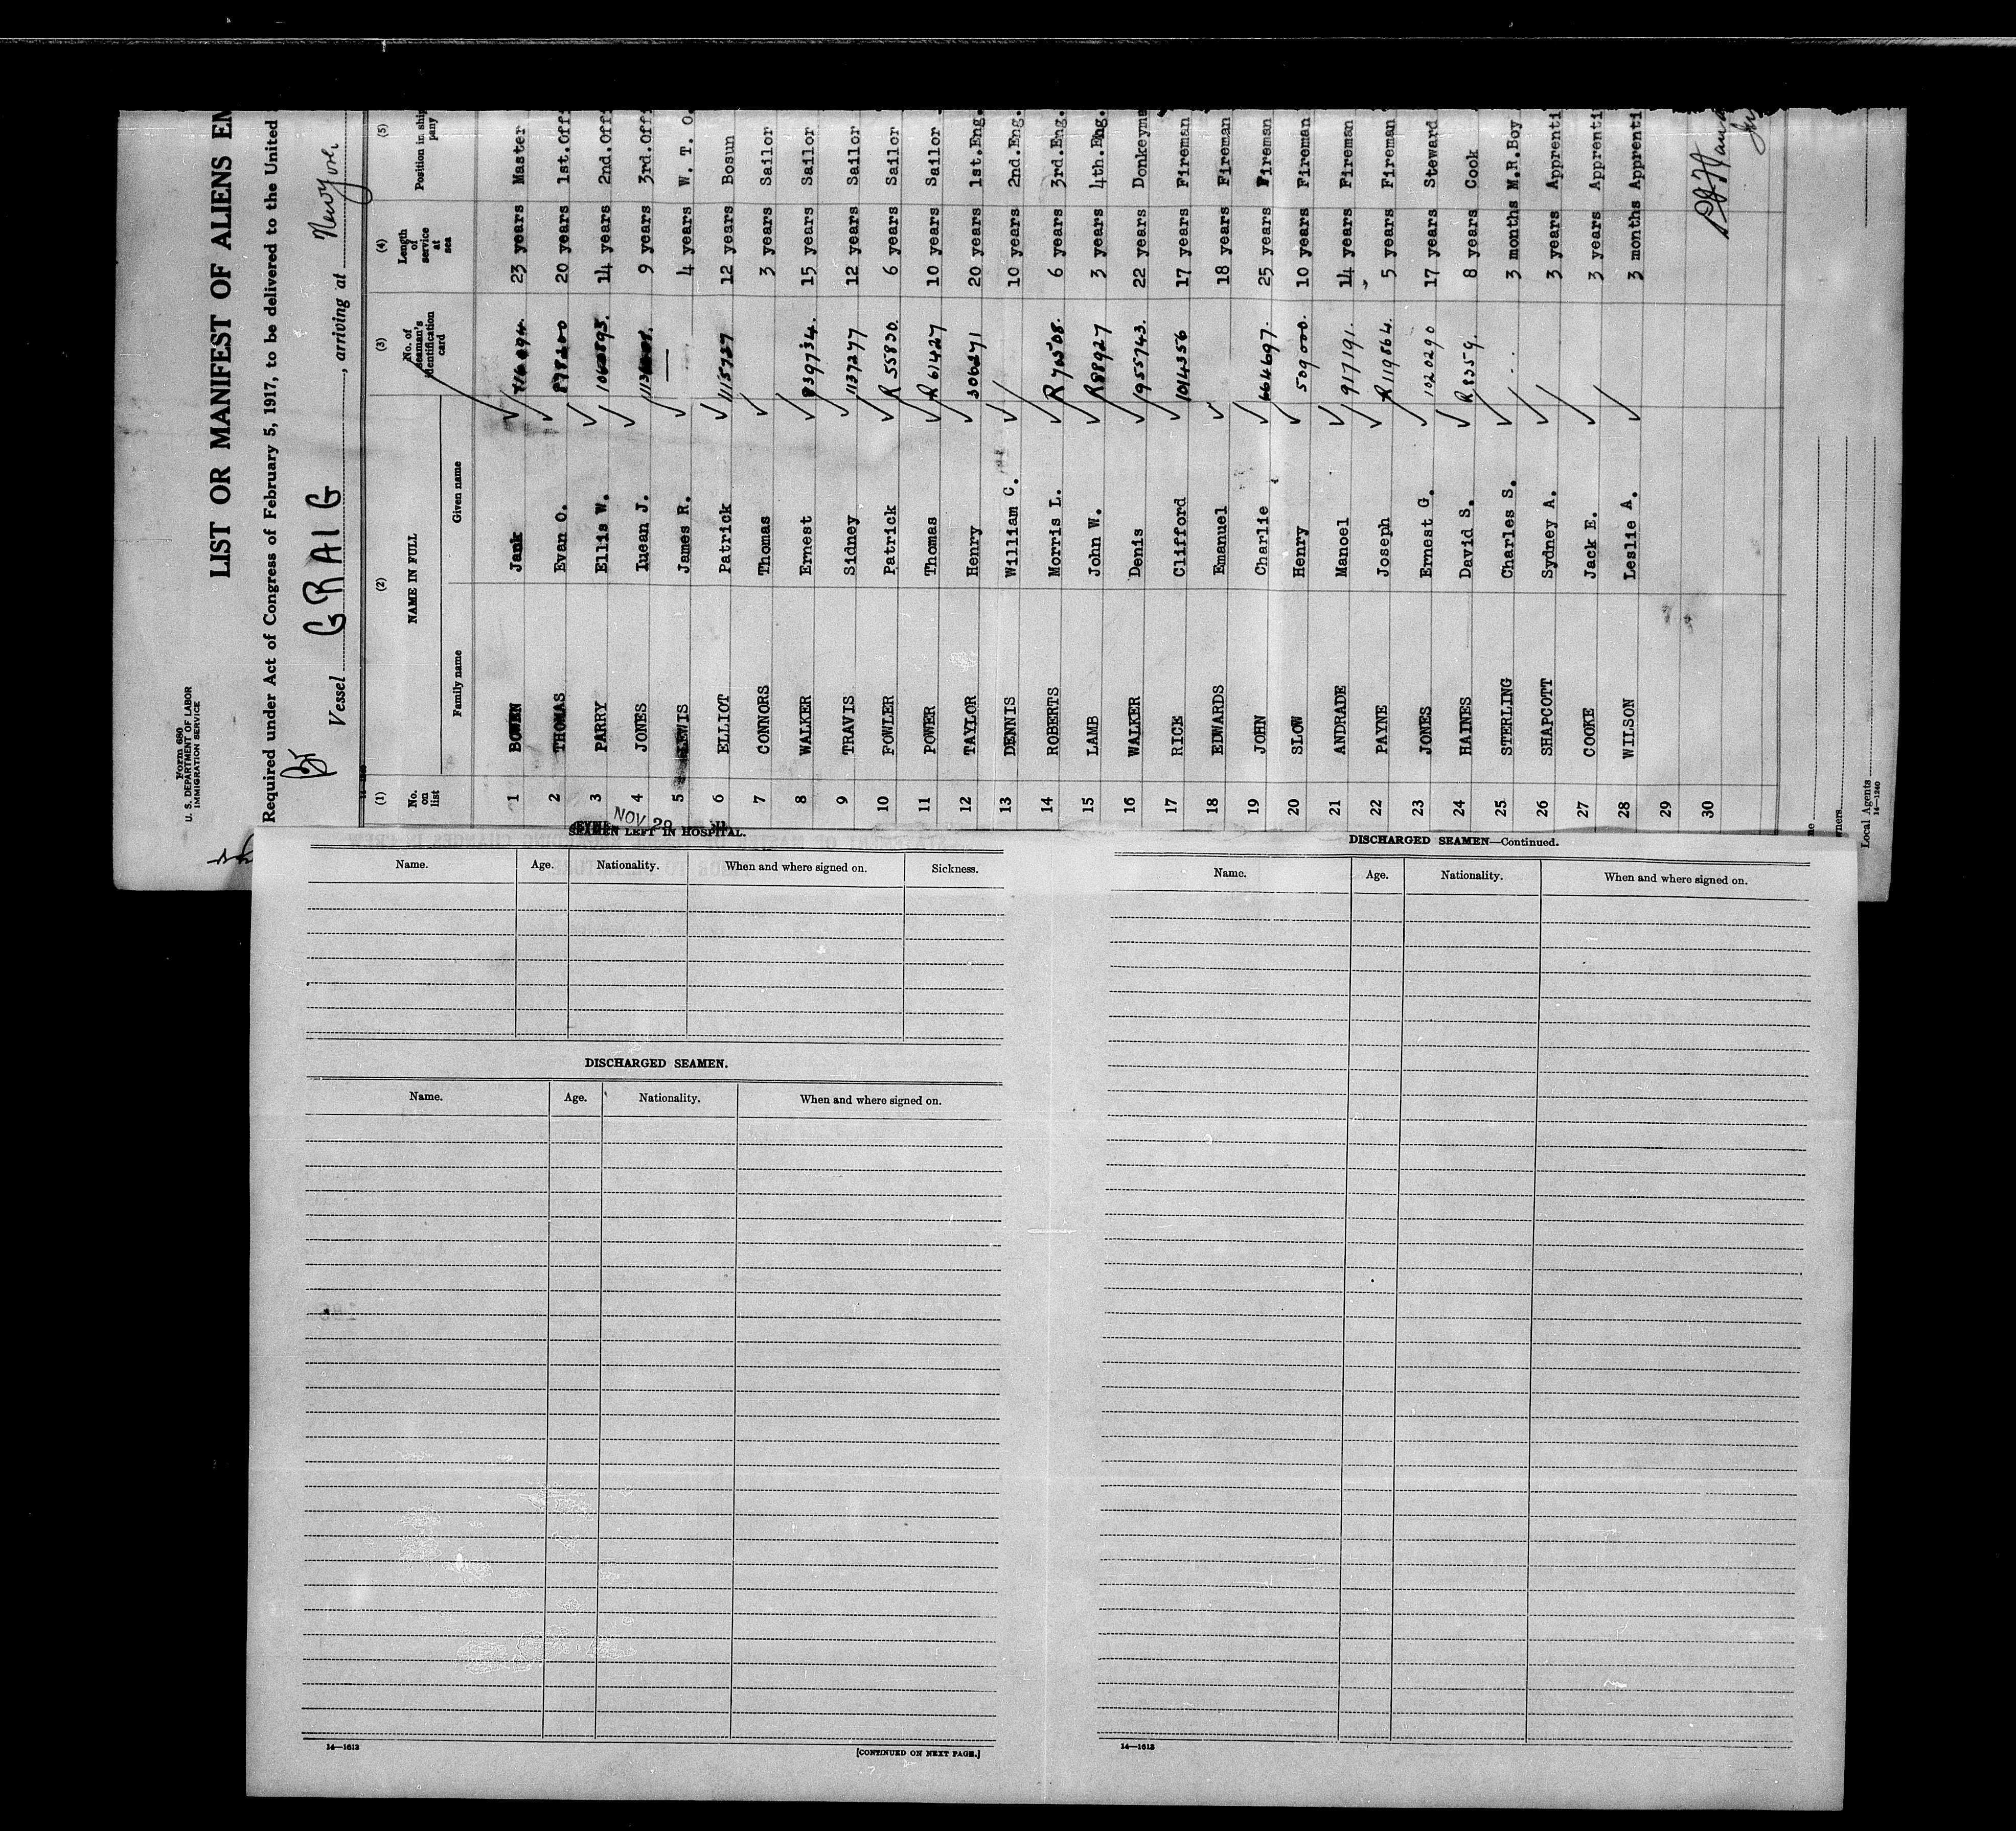 Form 680
U. S. DEPARTMENT OF LABOR
IMMIGRATION SERVICE
LIST OR MANIFEST OF ALIENS EM
Required under Act of Congress of February 5, 1917, to be delivered to the United
Vessel GRAIG, arriving at New York
(1) (2) (3) (4) (5)
No. on list NAME IN FULL No. of seaman's identification card Length of service at sea Position in ship pany
Family name Given name
1 BOWEN Jank 23 years Master
2 THOMAS Evan O. 20 years 1st.Off
3 PARRY Ellis W. 14 years 2nd.Off
4 JONES Iuean J. 9 years 3rd.Off
5 LEWIS James R. — 4 years W. T. O.
6 ELLIOT Patrick 1115727 12 years Bosun
7 CONNORS Thomas 3 years Sailor
8 WALKER Ernest 839734. 15 years Sailor
9 TRAVIS Sidney 1137277 12 years Sailor
10 FOWLER Patrick R 55830. 6 years Sailor
11 POWER Thomas R 61427 10 years Sailor
12 TAYLOR Henry 306271 20 years 1st.Eng.
13 DENNIS William C. 10 years 2nd.Eng.
14 ROBERTS Morris L. R 70508. 6 years 3rd.Eng.
15 LAMB John W. R88927 3 years 4th.Eng.
16 WALKER Denis 955743. 22 years Donkeyma
17 RICE Clifford 1014356 17 years Fireman
18 EDWARDS Emanuel 18 years Fireman
19 JOHN Charlie 664697. 25 years Fireman
20 SLOW Henry 509000. 10 years Fireman
21 ANDRADE Manoel 917191. 14 years Fireman
22 PAYNE Joseph R 119864. 5 years Fireman
23 JONES Ernest G. 1020290 17 years Steward
24 HAINES David S. R 8359. 8 years Cook
25 STERLING Charles S. 3 months M.R.Boy
26 SHAPCOTT Sydney A. 3 years Apprenti
27 COOKE Jack E. 3 years Apprenti
28 WILSON Leslie A. 3 months Apprenti
29
30
wners
Local Agents
14—1240
NOV 29
SEAMEN LEFT IN HOSPITAL.
Name. Age. Nationality. When and where signed on. Sickness.
DISCHARGED SEAMEN.
Name. Age. Nationality. When and where signed on.
14—1613
[CONTINUED ON NEXT PAGE.]
DISCHARGED SEAMEN—Continued.
Name. Age. Nationality. When and where signed on.
14—1613